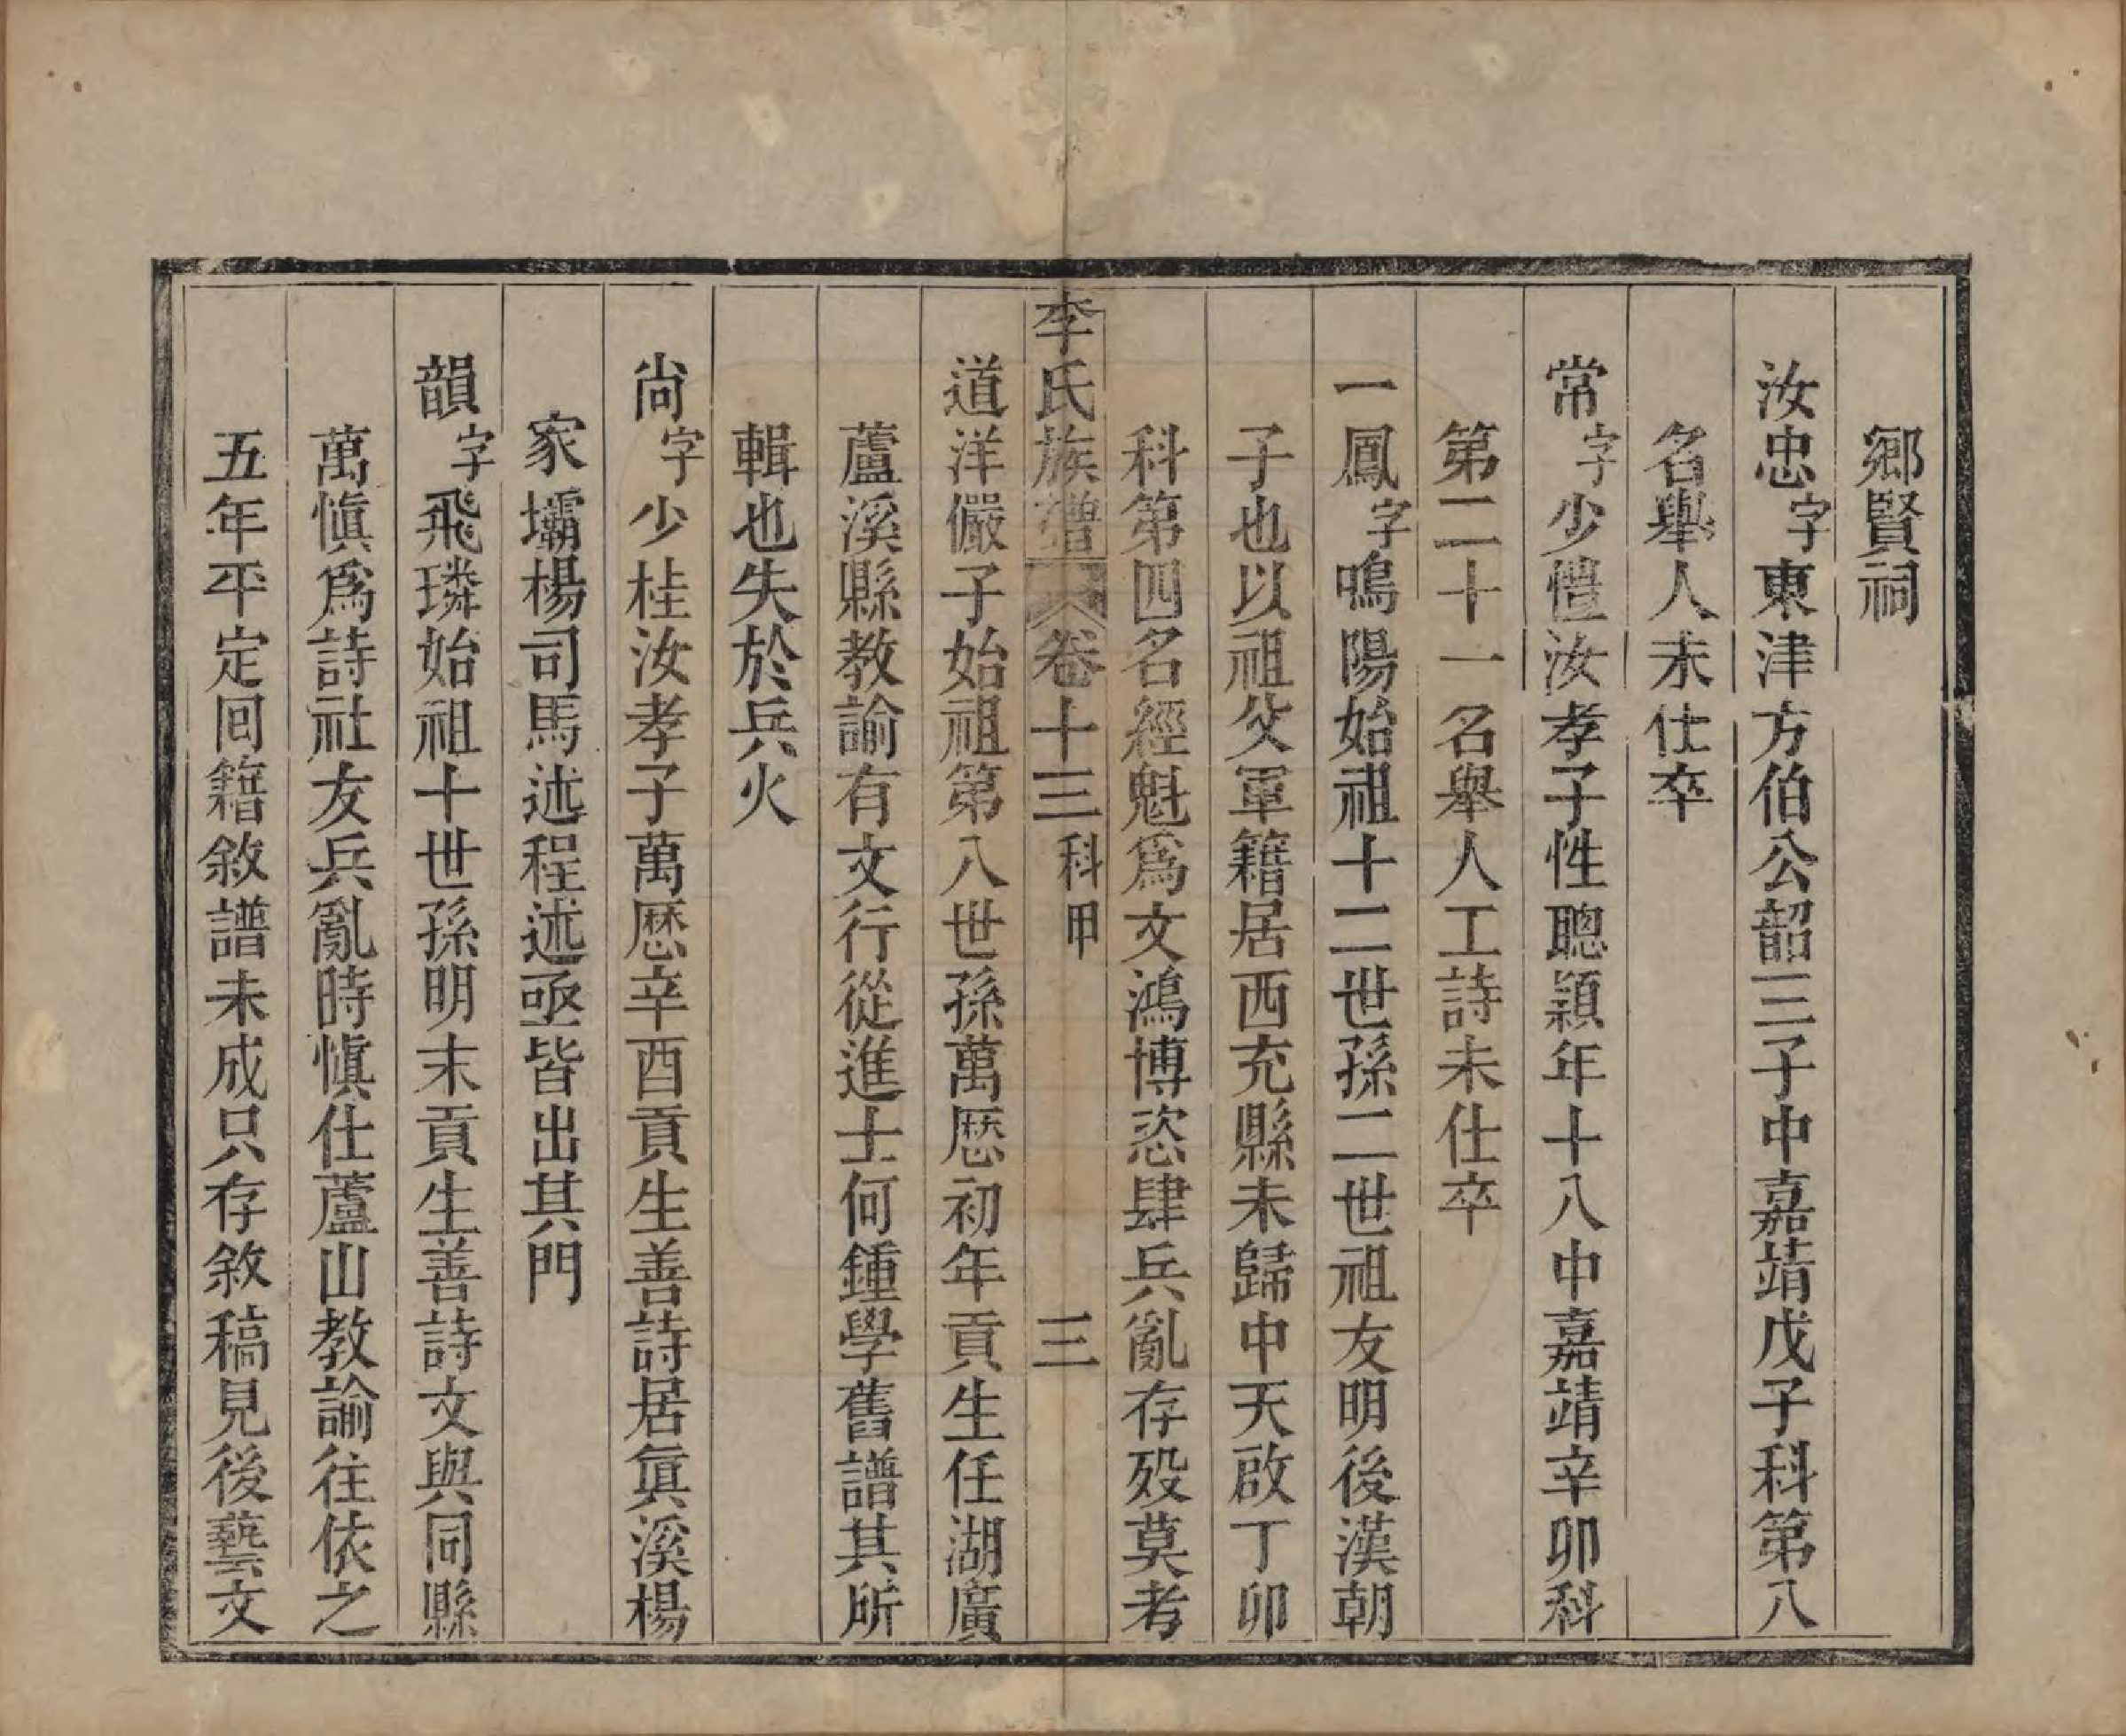 鄉賢祠
汝忠字東津方伯公韶三子中嘉靖戊子科第八
名舉人未仕卒
常字少憕汝孝子性聰穎年十八中嘉靖辛卯科
第二十一名舉人工詩未仕卒
一鳳字鳴陽始祖十二世孫二世祖友明後漢朝
子也以祖父軍籍居西充縣未歸中天啟丁卯
科第四名經魁爲文鴻博恣肆兵亂存歿莫考
李氏族譜 卷十三 科甲 三
道洋儼子始祖第八世孫萬厯初年貢生任湖廣
蘆溪縣教諭有文行從進士何鍾學舊譜其所
輯也失於兵火
尚字少桂汝孝子萬厯辛酉貢生善詩居眞溪楊
家壩楊司馬述程述亟皆出其門
韻字飛璘始祖十世孫明末貢生善詩文與同縣
萬愼爲詩社友兵亂時愼仕蘆山教諭往依之
五年平定囘籍敘譜未成只存敘稿見後藝文